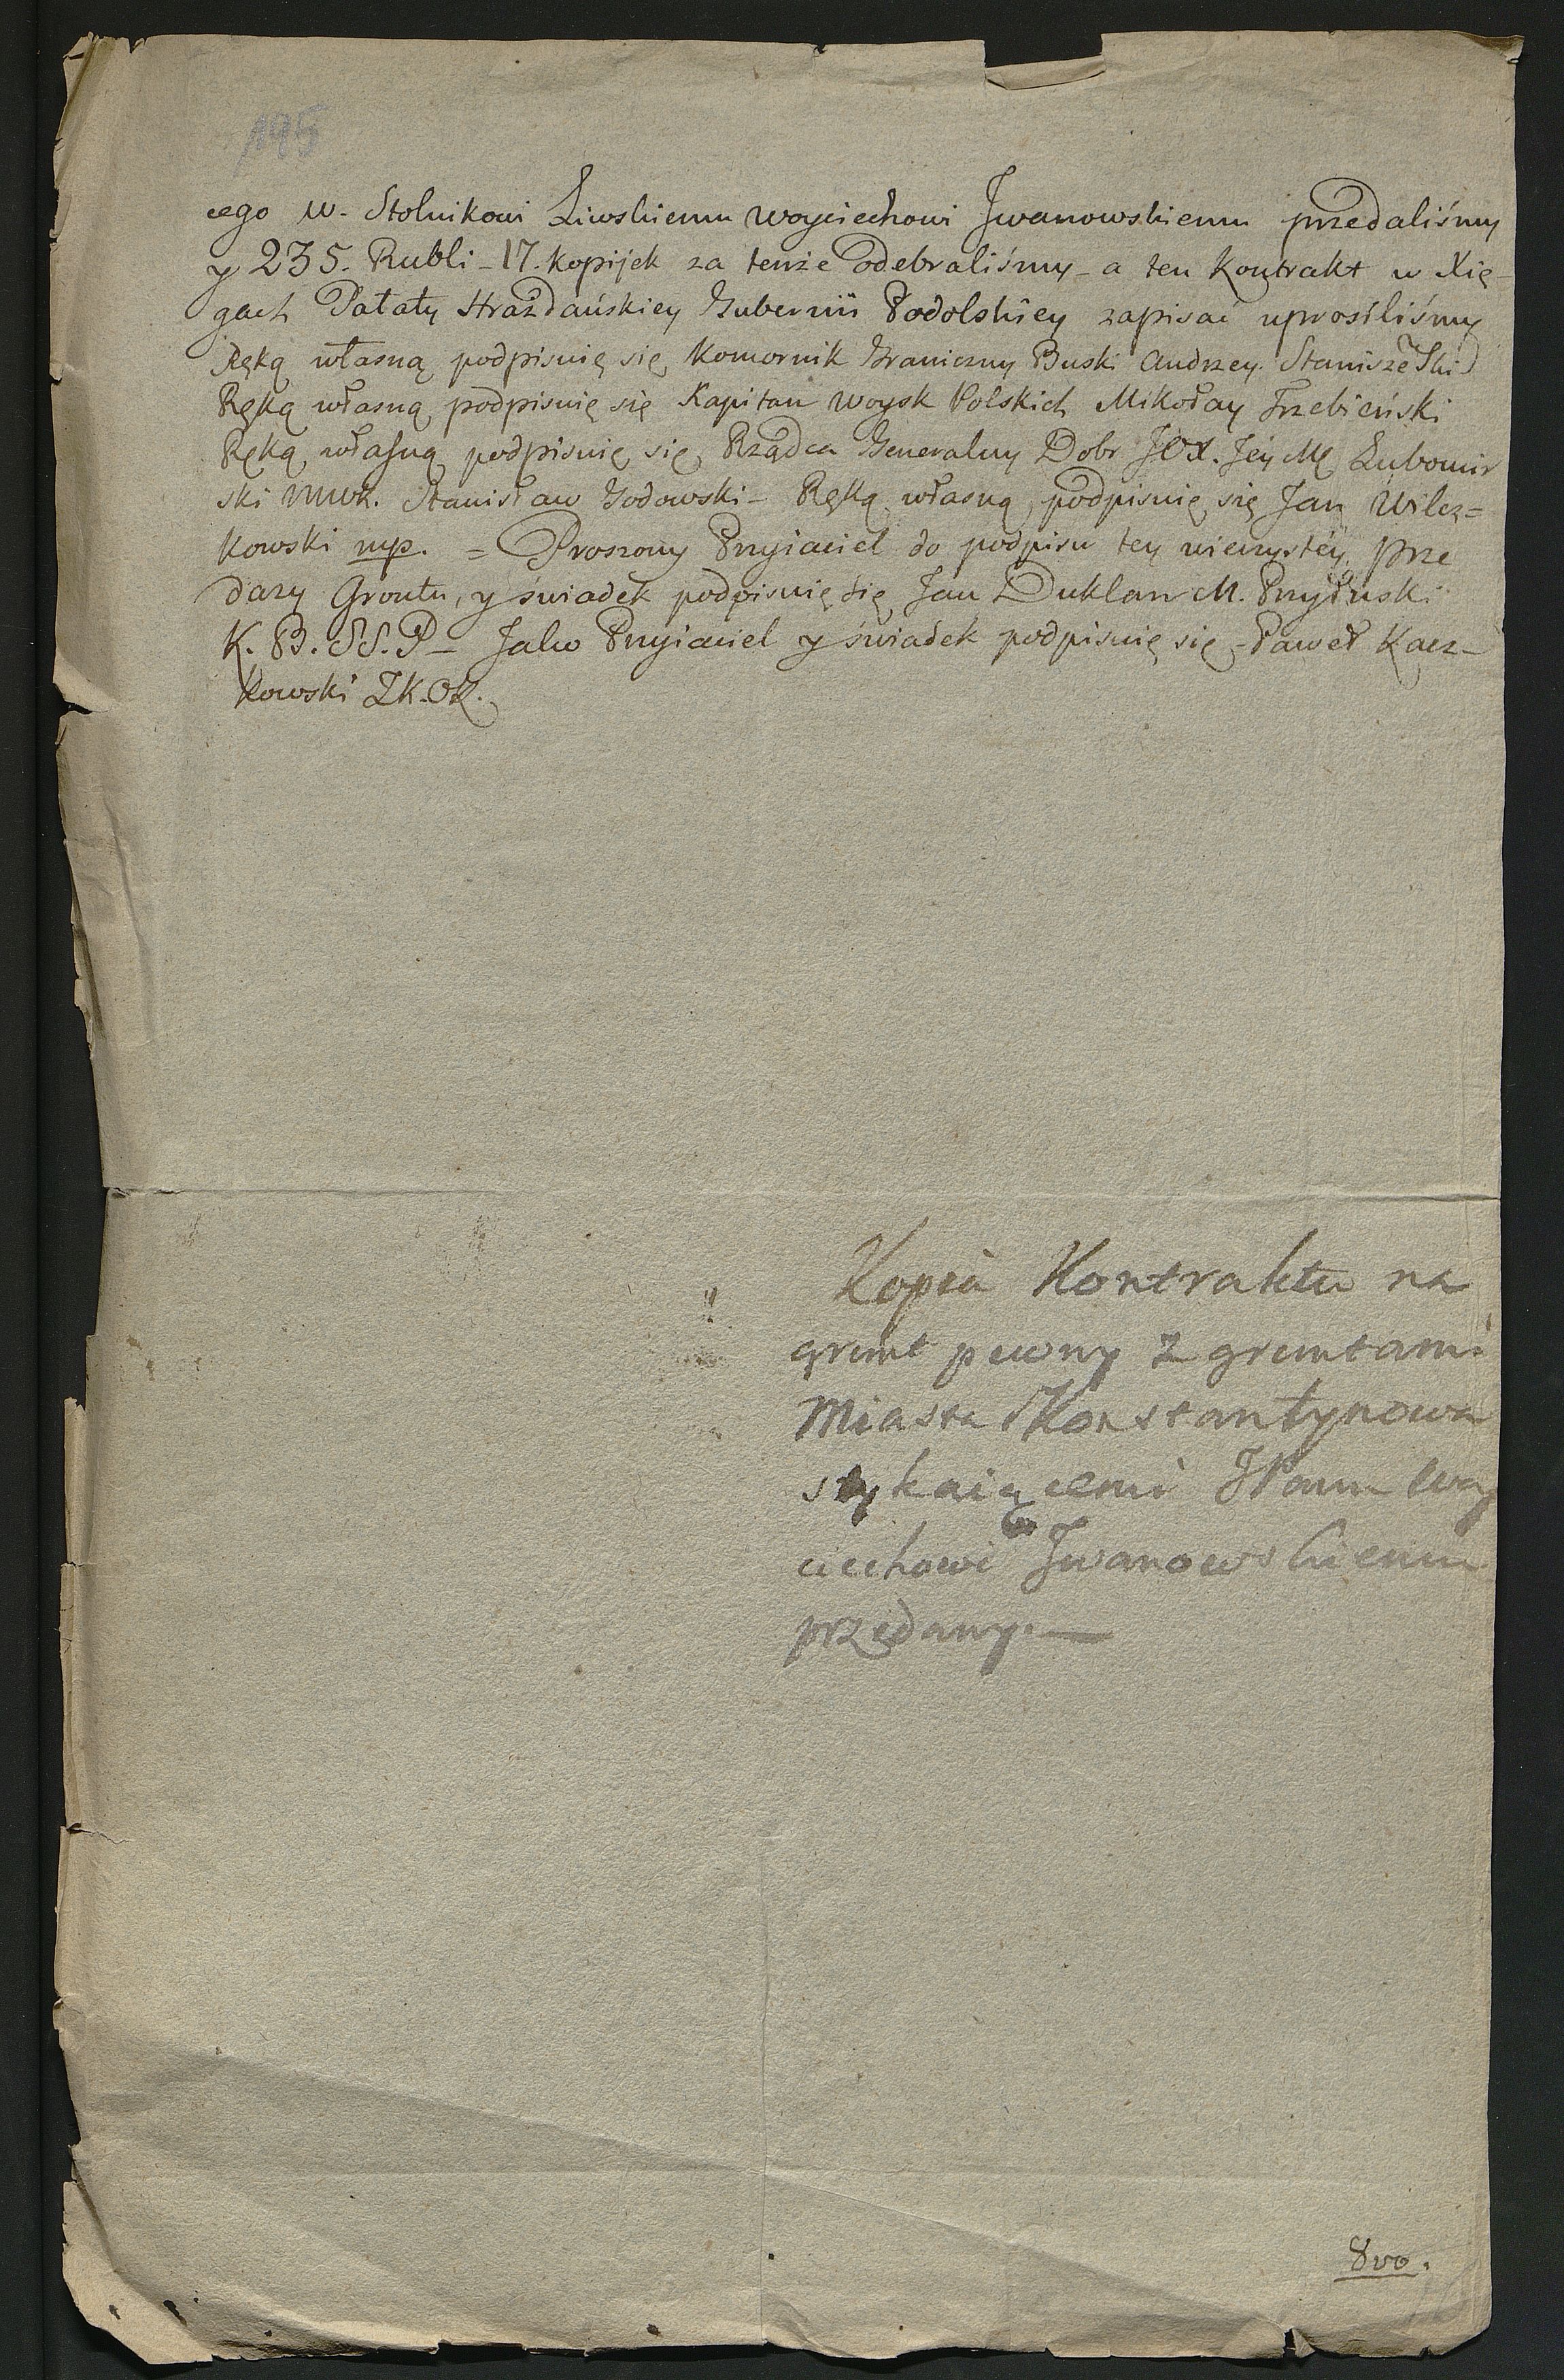 195
cego W. Stolnikowi Liwskiemu Woyciechowi Jwanowskiemu przedaliśmy
y 235. Rubli - 17. kopijek za tenże odebraliśmy - a ten Kontrakt w Xię-
gach Pałaty Hrażdańskiey Gubernii Podolskiey zapisać uprosiliśmy
Ręką własną podpisuię się Komornik Graniczny Buski Andrzey Staniszeski
Ręką własną podpisuię się Kapitan Woysk Polskich Mikołay Trzebieński
Ręką własną podpisuię się Rządca Generalny Dobr JOX. Jey Mć Lubomir
ski Stanisław Godowski - Ręką własną podpisuię się Jan Wilcz=
kowski mp. = Proszony Przyiaciel do podpisu tey wieczystéy prze
dazy Grontu, y świadek podpisuię się Jan Duklan M. Przyłuski
K. B. SS. P - Jako Przyiaciel y świadek podpisuię się - Paweł Kacz-
kowski
Kopia Kontraktu na
grunt pewny z gruntami
Miasta Konstantynowa
stykaiącemi JPanu Woy
ciechowi Jwanowskiemu
przedany. —
8vo.